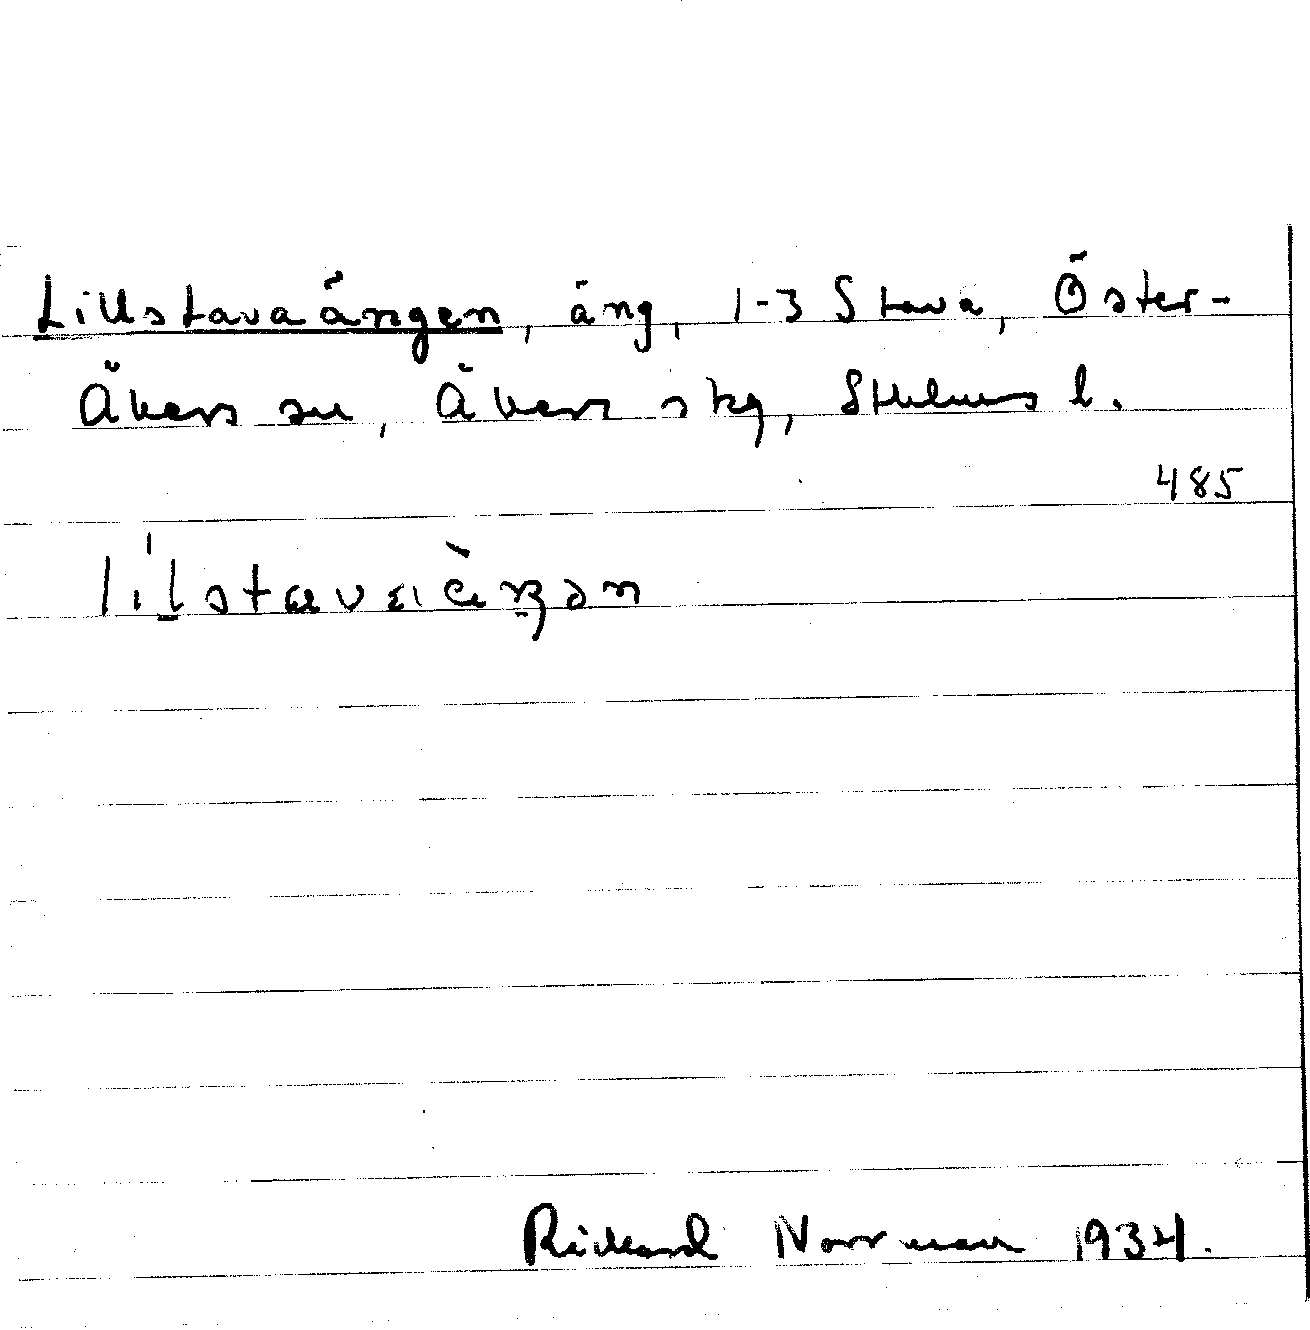 Lillstavaängen, äng, 1-3 Stava, Öster-
Åkers sn, Åkers skg, Sthlms l.
485
Rickard Norrman 1934.